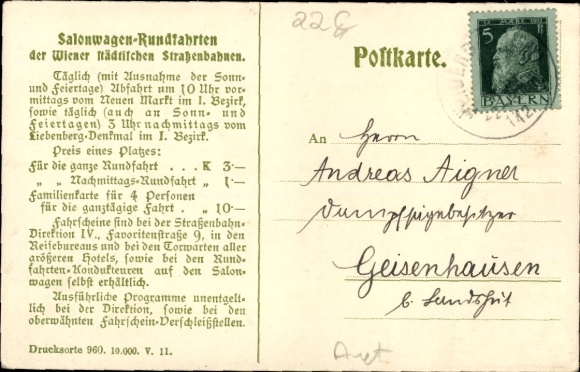 22
Salonwagen-Rundfahrten
der Wiener städtischen Straßenbahnen.
Täglich (mit Ausnahme der Sonn-
und Feiertage) Abfahrt um 10 Uhr vor-
mittags vom Neuen Markt im I. Bezirk,
sowie täglich (auch an Sonn- und
Feiertagen) 3 Uhr nachmittags vom
Liebenberg-Denkmal im I. Bezirk.
Preis eines Platzes:
Für die ganze Rundfahrt . . . K 3·—
„ „ Nachmittags-Rundfahrt „ 1·—
Familienkarte für 4 Personen
für die ganztägige Fahrt . „ 10·—
Fahrscheine sind bei der Straßenbahn-
Direktion IV., Favoritenstraße 9, in den
Reisebureaus und bei den Torwarten aller
größeren Hotels, sowie bei den Rund-
fahrten-Kondukteuren auf den Salon-
wagen selbst erhältlich.
Ausführliche Programme unentgelt-
lich bei der Direktion, sowie bei den
oberwähnten Fahrschein-Verschleißstellen.
Drucksorte 960. 10.000. V. 11.
Postkarte.
5
BAYERN
An Herrn
Andreas Aigner
Dampfsägebesitzer
Geisenhausen
b. Landshut